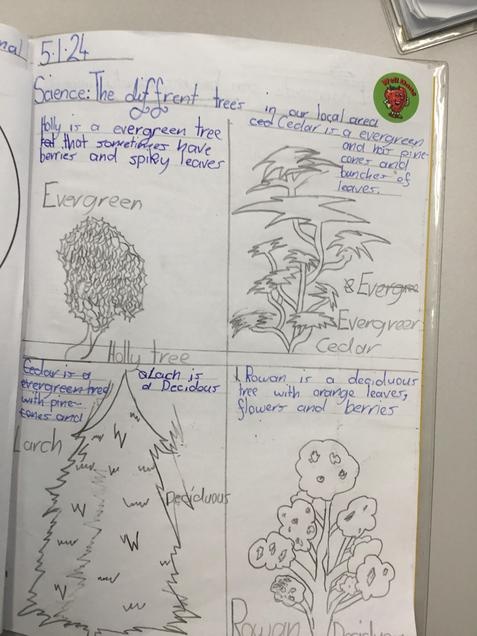 nal
5.1.24
Science: The diffrent trees in our local area
Well Done!
Holly is a evergreen tree
that sometimes have
berries and spiky leaves
Evergreen
Holly tree
ced Cedar is a evergreen
and has pine-
cones and
bunches of
leaves.
& Evergre
Evergreen
Cedar
Cedar is a
evergreen tree
with pine-
cones and
a Lach is
a Decidous
Larch
Deciduous
Rowan is a deciduous
tree with orange leaves,
flowers and berries
Rowan Deciduo